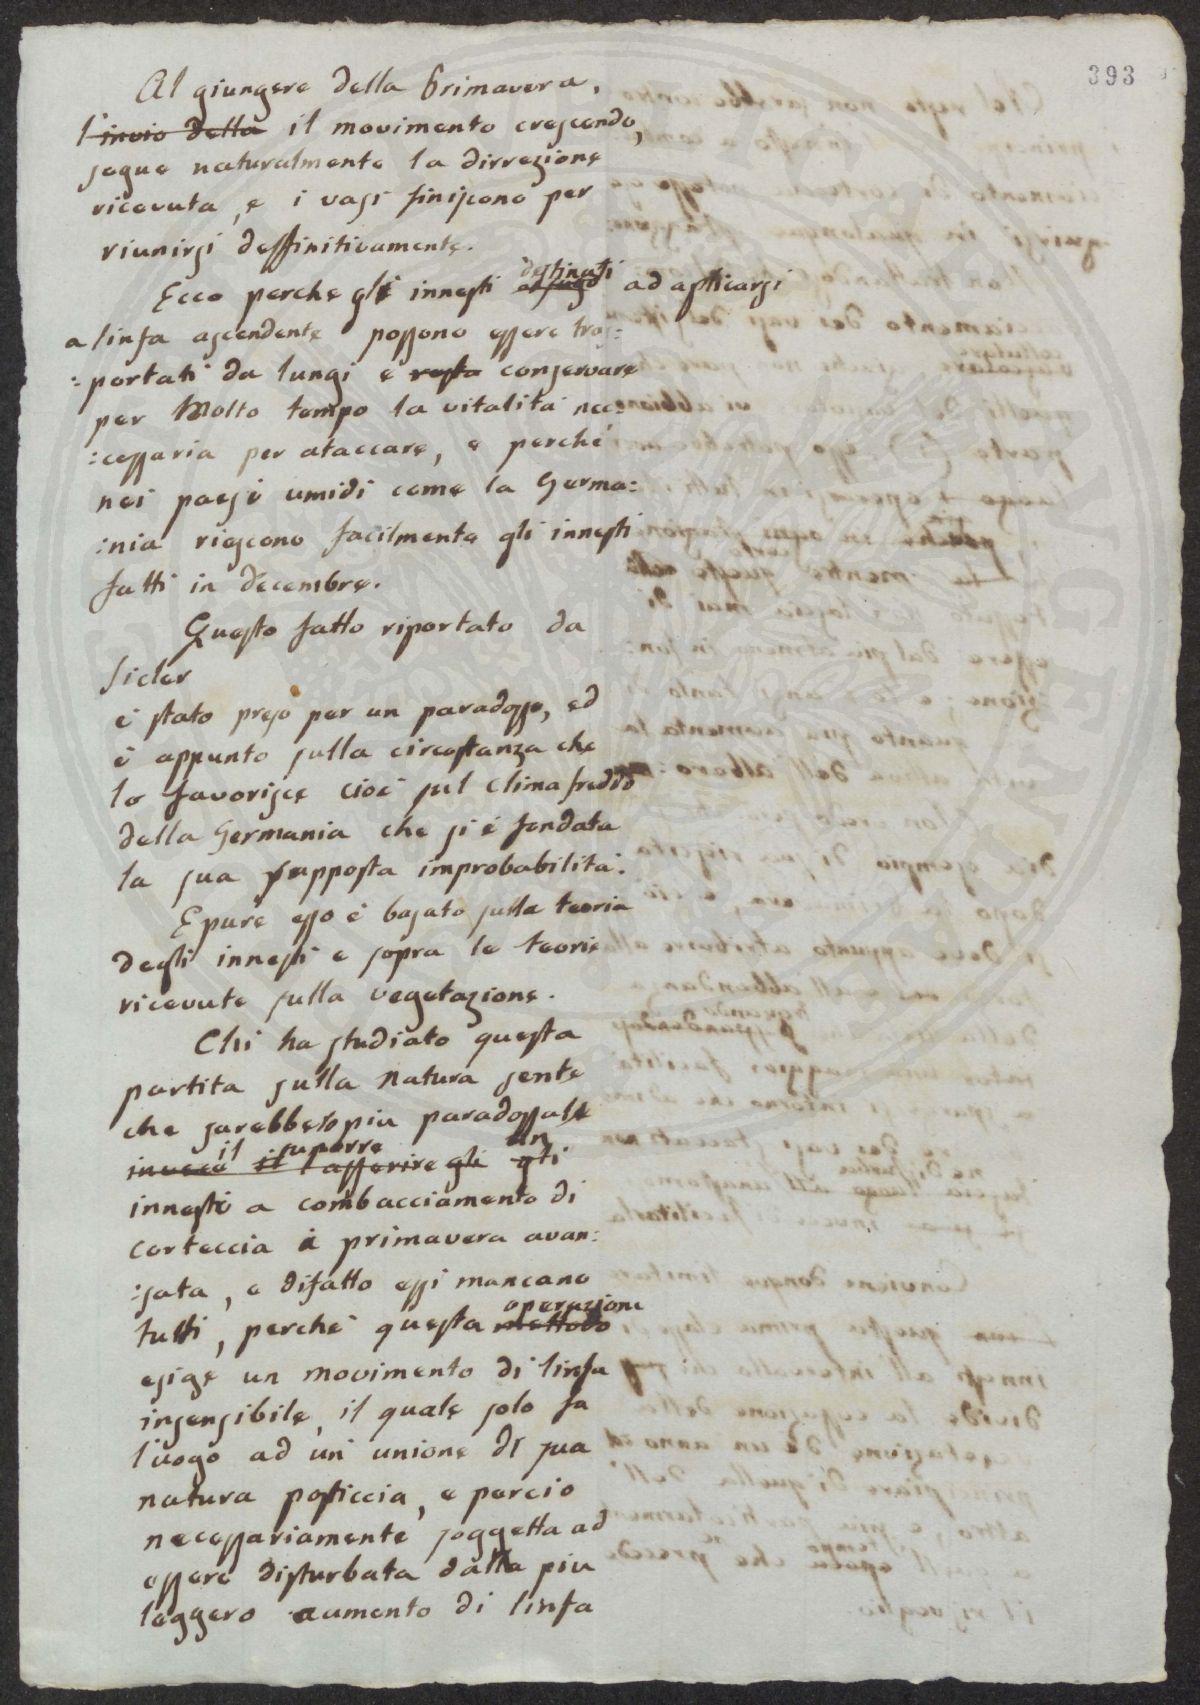 393
Al giungere della Primavera,
l'invio della il movimento crescendo,
segue naturalmente la dirrezione
ricevuta, e i vasi finiscono per
riunirsi deffinitivamente.
Ecco perche gli innesti destinati ad aplicarsi
a linfa ascendente possono essere tras:
:portati da lungi e resta conservare
per Molto tempo la vitalita nec:
:cessaria per ataccare, e perché
nei paesi umidi come la Germa:
:nia riescono facilmente gli innesti
fatti in decembre.
Questo fatto riportato da
Sicler
è stato preso per un paradosso, ed
è appunto sulla circostanza che
lo favorisce cioè sul clima freddo
della Germania che si è fondata
la sua supposta improbabilità.
Epure esso è basato sulla teoria
degli innesti e sopra le teorie
ricevute sulla vegetazione.
Chi ha studiato questa
partita sulla Natura sente
che sarebbe piu paradossale
il suporre un
invece il l'asserire gli gli
innesti a combacciamento di
corteccia a primavera avan:
:sata, e difatto essi mancano
tutti, perche questa operazione mettodo
esige un movimento di linfa
insensibile, il quale solo fa
luogo ad un' unione di sua
natura posticcia, e percio
necessariamente soggetta ad
essere disturbata dalla piu
leggero aumento di linfa